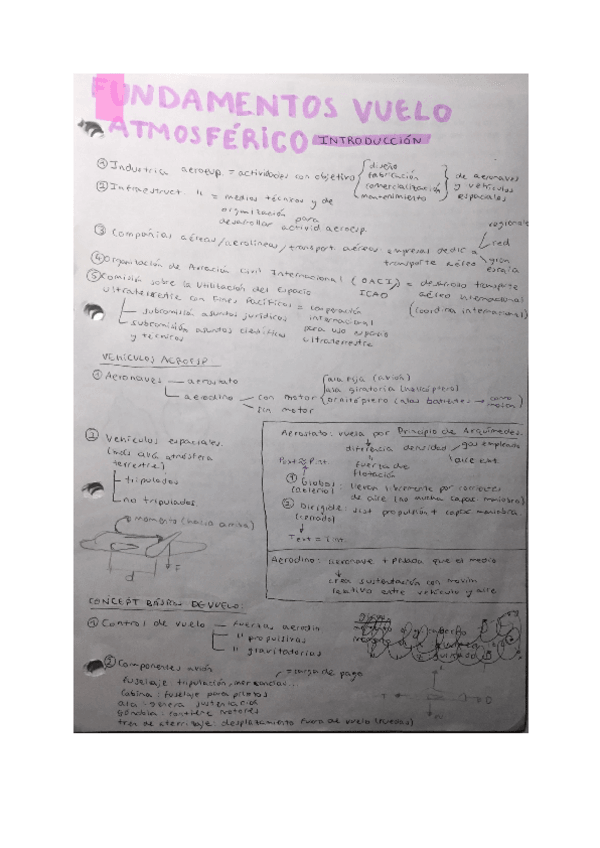 FUNDAMENTOS VUELO
ATMOSFÉRICO INTRODUCCIÓN
① Industria aeroesp. = actividades con objetivo { diseño fabricación comercialización mantenimiento } de aeronaves y vehículos espaciales
② Infraestruct. " = medios técnicos y de
organización para
desarrollar activid aeroesp.
③ Compañías aéreas/aerolíneas/transport aéreas: empresas dedic a
transporte aéreo
regional
red
gran escala
④ Organización de Aviación Civil Internacional (OACI) = desarrollo transporte
ICAO aéreo internacional
(coordina internacional)
⑤ Comisión sobre la Utilización del Espacio
Ultraterrestre con Fines Pacíficos = cooperación
internacional
para uso espacio
ultraterrestre
subcomisión asuntos jurídicos
subcomisión asuntos científicos
y técnicos
VEHÍCULOS AEROESP
① Aeronaves — aerostato
aerodino — con motor
sin motor
ala fija (avión)
ala giratoria (helicóptero)
ornitóptero (alas batientes →
② Vehículos espaciales.
(más allá atmósfera
terrestre)
tripulados
no tripulados
Aerostato: vuela por Principio de Arquímedes.
diferencia densidad
gas empleado
aire ext.
fuerza de
flotación
① Globos:
② Dirigible: sist propulsión + capac maniobra
(cerrado)
Text = Tint.
Momento (hacia arriba)
d
F
Aerodino: aeronave + pesada que el medio
crea sustentación con movim
relativo entre vehículo y aire
CONCEPT BÁSICOS DE VUELO:
① Control de vuelo — fuerzas aerodin
" propulsivas
" gravitatorias
② Componentes avión
= carga de pago
Fuselaje: tripulación, mercancías...
Cabina: fuselaje para pilotos
ala: genera sustentación
Góndola: contiene motores
tren de aterrizaje: desplazamiento fuera de vuelo (ruedas)